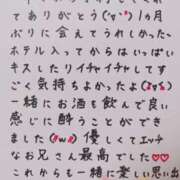 てありがとう(˘▽˘)1ヶ月
ぶりに会えてうれしかった〜
ホテル入ってからはいっぱい
キスしたりイチャイチャしてす
ごく気持ちよかったよ(>ω<)
一緒にお酒も飲んで良い
感じに酔うことができ
ました(๑•ω•๑)優しくてエッチ
なお兄さん最高でした♡♡
これからも一緒に楽しい思い出